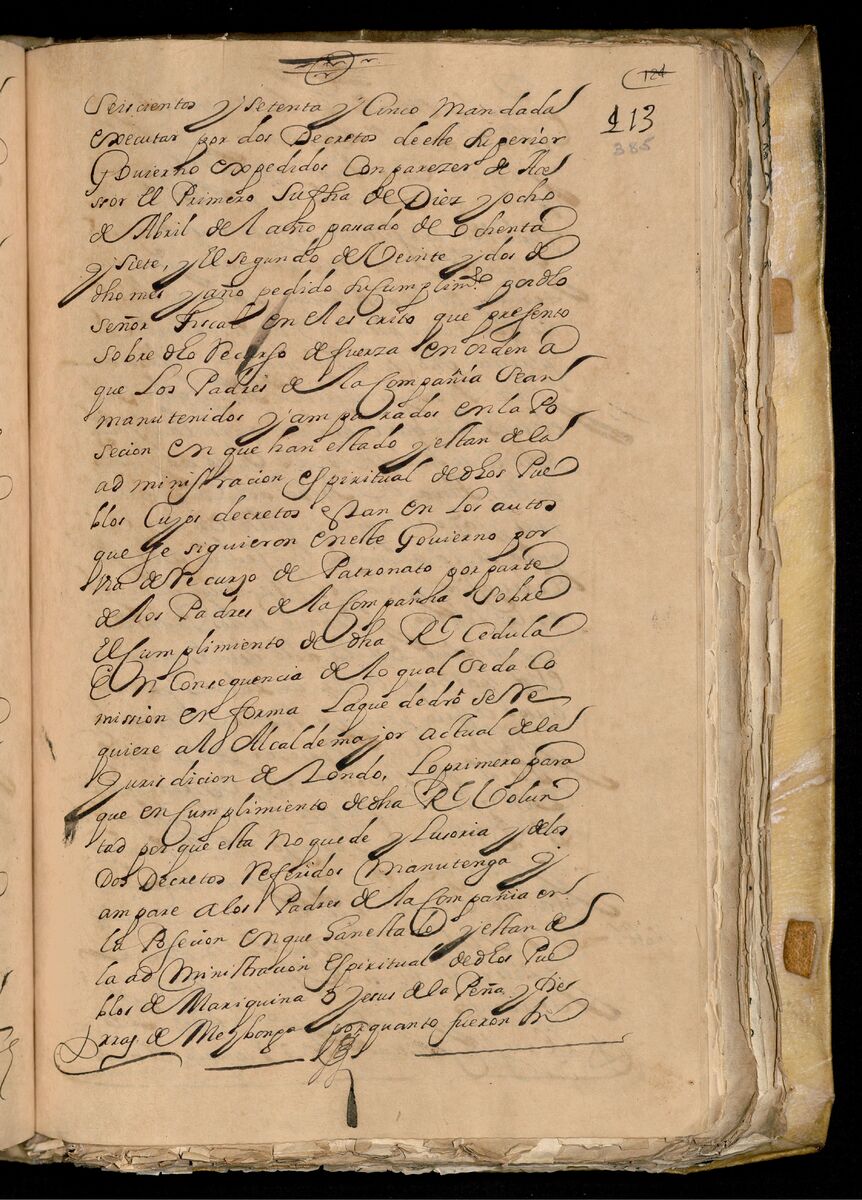 124
113
385
Seiscientos y Setenta y Cinco mandada
executar por dos Decretos deeste Superior
Govierno expedidos Con parezer de Ase
sor El Primero Su fha de Diez y ocho
de Abril del año pasado de ochenta
y siete, y El segundo de Veinte y dos de
dho mes y año pedido su Cumplimto por dho
señor Fiscal en el escrito que presento
sobre dho Recurso de fuerza en orden a
que Los Padres de la Compañia Sean
manutenidos y amparados en la Po
secion en que han estado y estan de la
administracion espiritual de dhos Pue
blos Cuyos decretos estan en Los autos
que se siguieron en este Govierno por
via de Recurso de Patronato por parte
de los Padres de la Compañia Sobre
El Cumplimiento de dha Rl Cedula
En Consequencia de lo qual se da Co
mission en forma La que de dro se Re
quiere al Alcalde mayor actual de la
Jurisdicion de Tondo, Lo primero para
que en Cumplimiento de dha Rl Volun
tad por que esta no quede ylusoria y de los
Dos Decretos Referidos Manutenga y
ampare a los Padres de la Compañia en
la Posecion en que han estado y estan de
la administracion espiritual de dhos Pue
blos de Mariquina y Jesus de la Peña y tier
rras de Meybonga por quanto fueron